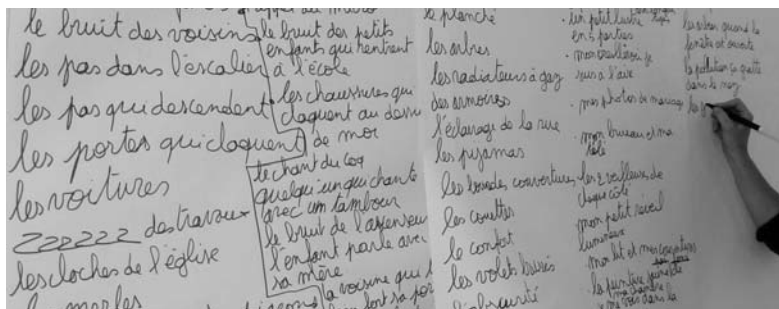 le bruit des voisins
les pas dans l'escalier
les pas qui descendent
les portes qui claquent
les voitures
zzzzzz des travaux
les cloches de l'église
le bruit des petits
enfants qui rentrent
à l'école
les chaussures qui
claquent au dessus
de moi
le chant du coq
quelqu'un qui chante
avec un tambour
le bruit de l'ascenseur
l'enfant parle avec
sa mère
la voisine qui
le planché
les arbres
les radiateurs à gaz
des armoires
l'éclairage de la rue
les pyjamas
les couvertures
les couettes
le confort
les volets brisés
l'obscurité
un petit lustre
en 5 parties
mon oreiller où je
suis à l'aise
mes photos de mariage
mon bureau et ma
télé
les 2 veilleuses de
chaque côté
mon petit réveil
lumineux
mon lit et mes
la peinture
ma chambre
les arbres quand la
fenêtre est ouverte
la pollution ça gratte
dans le nez